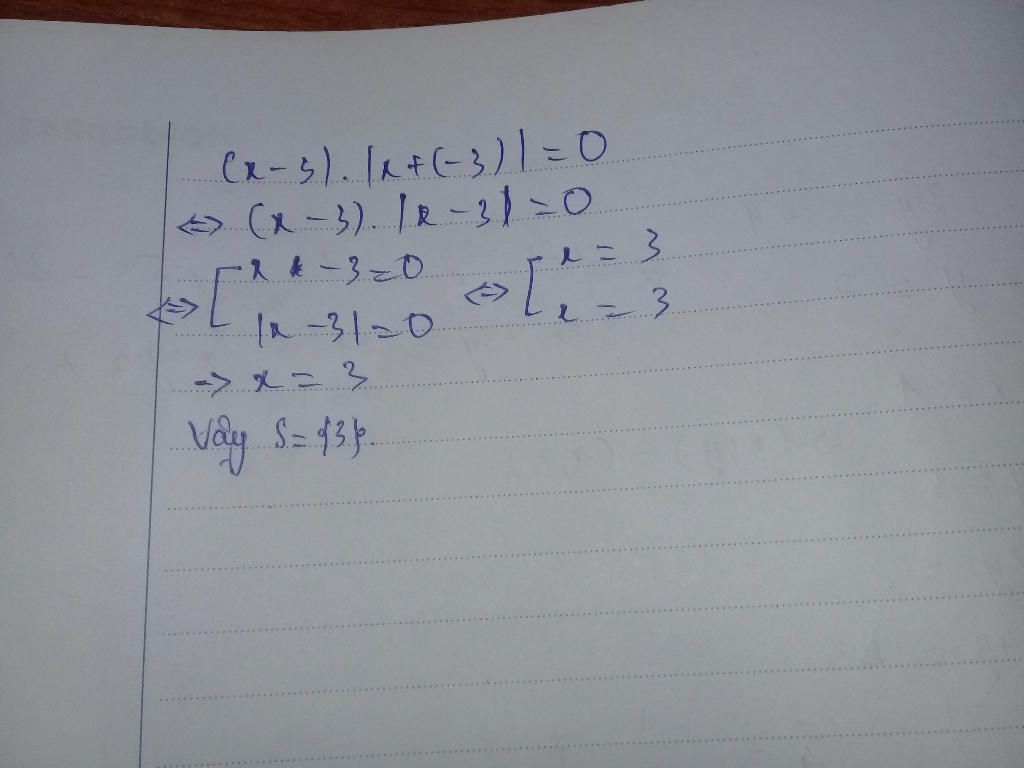 (x-3).|x+(-3)|=0
⇔ (x-3).|x-3|=0
⇔ [ x-3=0 ⇔ [ x=3
|x-3|=0 x=3
→ x=3
Vậy S={3}.